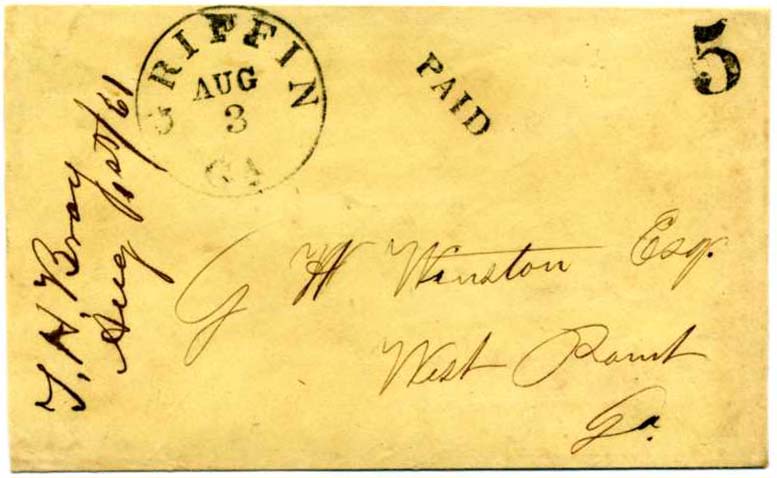 GRIFFIN
AUG
3
GA
PAID
5
T. H. Bray
Aug 1st/61
G W Winston Esq.
West Point
Ga.